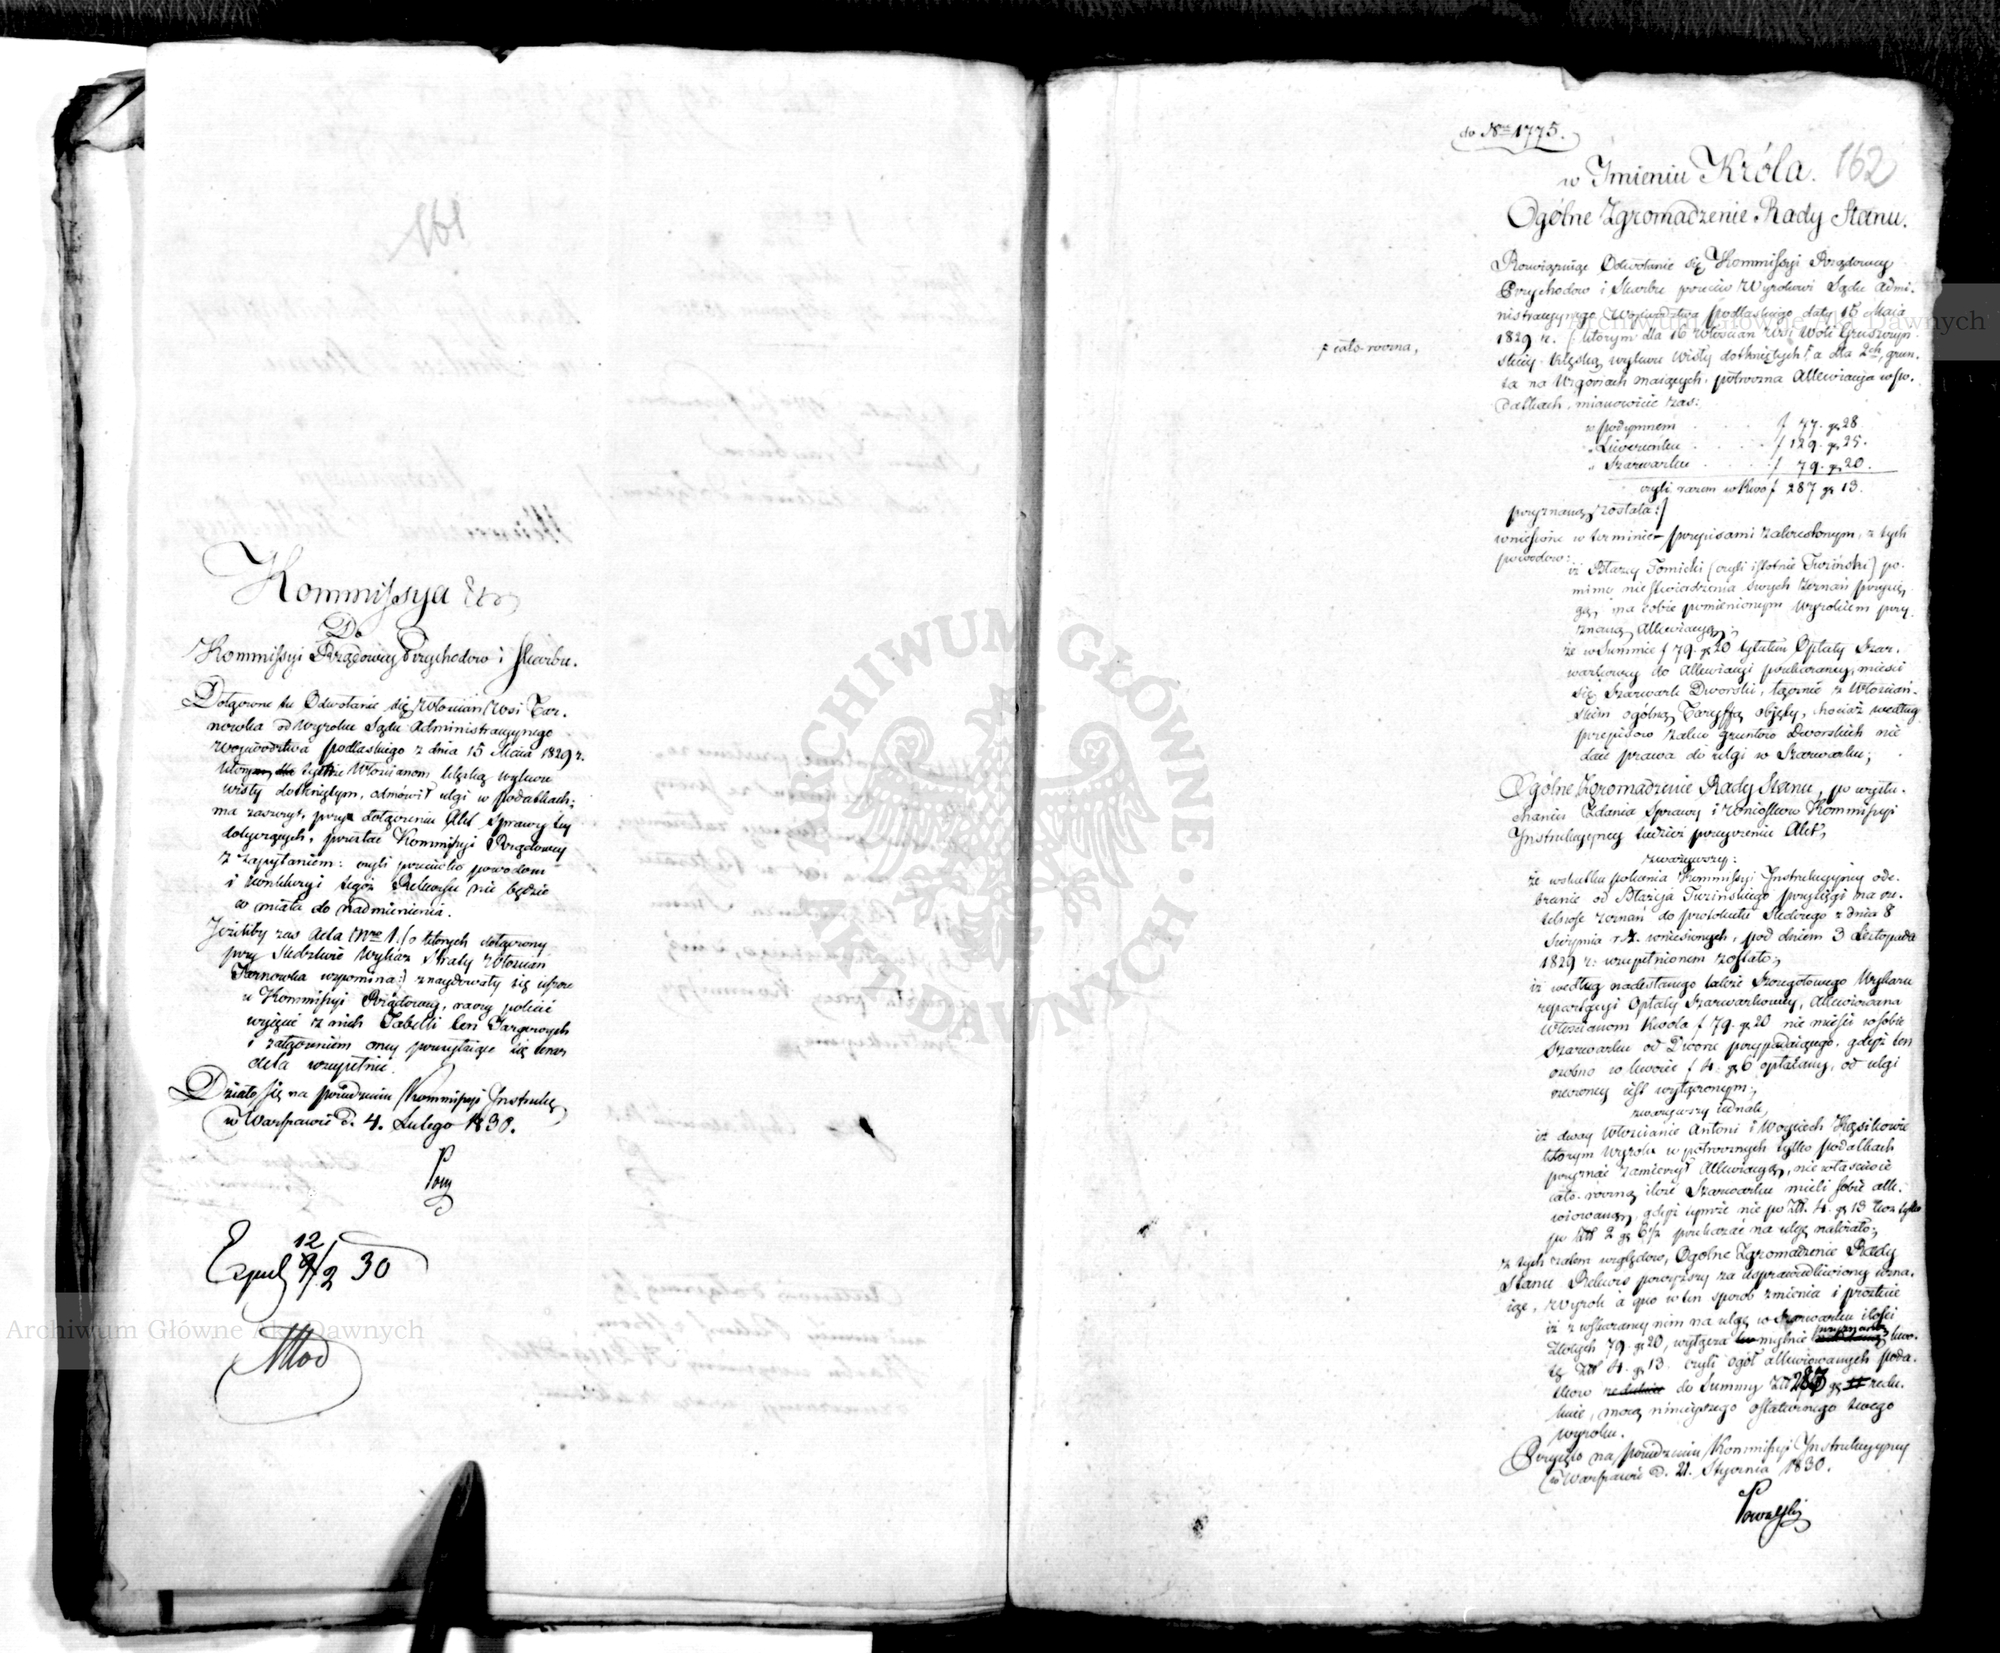 161
Kommissya Etc
Do
Kommissyi Rządowey Przychodow i Skarbu.
Dołączone tu Odwołanie się Włoscian Wsi Tar-
nowka od Wyroku Sądu Administracyinego
Woiewodztwa Podlaskiego z dnia 15 Maia 1829 r.
którym tychże Włoscianom klęską wylewu
wisły dotkniętym, odmówił ulgi w podatkach;
ma zaszczyt, przy dołączeniu Akt Sprawy tey
dotyczących, przesłać Kommissyi Rządowey
z zapytaniem: czyli przeciwko powodom
i konkluzyi tegoż Rekursu nie będzie
co miała do nadmienienia.
Jeżeliby zas Acta Nro 1. /: o ktorych dołączony
przy Sledztwie Wykaz straty Włoscian
Tarnowka wspomina:/ znaydowały się ieszcze
w Kommissyi Rządowey, raczy polecić
wyięcie z nich Tabelli
i załączeniem oney
akta uzupełnić.
Działo się na posiedzeniu Kommissyi Instrukc.
w Warszawie d. 4. Lutego 1830.
Exped 12/2 30
do Nro 1775.
162
w Imieniu Króla.
Ogólne Zgromadzenie Rady Stanu.
Rozwiązuiąc Odwołanie się Kommissyi Rządowey
Przychodow i Skarbu przeciw Wyrokowi Sądu Admi-
nistracyinego Woiewodztwa Podlaskiego daty 15 Maia
1829 r. /: ktorym dla 16 Włoscian Wsi Woli
klęską wylewu Wisły dotkniętych, a dla 2ch, grun-
ta na Wzgórzach maiących, półroczna Allewiacya w po-
datkach, mianowicie zas:
cało-roczna,
w podymnem f 77. gr 28
" Liwerunku f 129. gr 25.
" Szarwarku f 79. gr 20.
czyli razem w kwo f 287 gr 13.
przyznaną została:/
wniesione w terminie przepisami zakreslonym, z tych
powodow:
iż Błazey Tomicki (czyli istotnie Turiński) po-
mimo niestwierdzenia swych zeznań przysię-
gą, ma sobie pomienionym Wyrokiem przy-
znaną Allewiacyą;
że w Summie f 79. gr 20 tytułem Opłaty Szar-
warkowey do Allewiacyi podaney, miesci
się Szarwark Dworski, łącznie z Włoscian-
skim ogólną Taryffą obięty, chociaż według
przepisow zalew gruntów Dworskich nie
daie prawa do ulgi w Szarwarku;
Ogólne Zgromadzenie Rady Stanu, po wysłu-
chaniu Zdania Sprawy i Wniosków Kommissyi
Instrukcyiney tudzież przeyrzeniu Akt,
zważywszy:
że wskutku polecenia Kommissyi Instrukcyiney ode-
branie od Błażeja Turińskiego przysięgi na rze-
telność zeznań do protokułu Sledczego z dnia 8
Sierpnia wniesionych, pod dniem 3 Listopada
1829 r: uzupełnionem zostało;
iż według nadesłanego także Szczegołowego Wykazu
repartycyi Opłaty Szarwarkowey, Allewiowana
Włoscianom kwota f 79. gr 20 nie miesci w sobie
Szarwarku od Dworu przypadaiącego, gdyż ten
osobno w kwocie f 4. gr 6 opłacany, od ulgi
rzeczoney iest wyłączonym;
zważywszy iednak,
iż dway Włoscianie Antoni i Woyciech Kąsikowie
którym Wyrok w półrocznych tylko podatkach
przyznać zamierzył Allewiacyą, niewłasciwie
cało-roczną ilość Szarwarku mieli sobie alle-
wiowaną, gdyż tymże nie po Zł. 4. gr 13 lecz tylko
po Zł 2 gr 6½ podać na ulgę należało;
z tych zatem względow, Ogólne Zgromadzenie Rady
Stanu Rekurs powyższy za usprawiedliwiony uzna-
iąc, Wyrok a quo w ten sposób zmienia i prostuie
iż z wskazaney nim na ulgę w Szarwarku ilości
Złotych 79. gr 20, wyłącza mylnie przyznaną kwo-
tę Zł 4. gr 13. czyli ogół allewiowanych poda-
tkow do Summy Zł 283 gr redu-
kuie, mocą ninieyszego ostatecznego swego
wyroku.
Przyięto na posiedzeniu Kommissyi Instrukcyiney
w Warszawie d. 21. Stycznia 1830.
Archiwum Główne Akt Dawnych
ARCHIWUM GŁÓWNE AKT DAWNYCH
Archiwum Główne Akt Dawnych